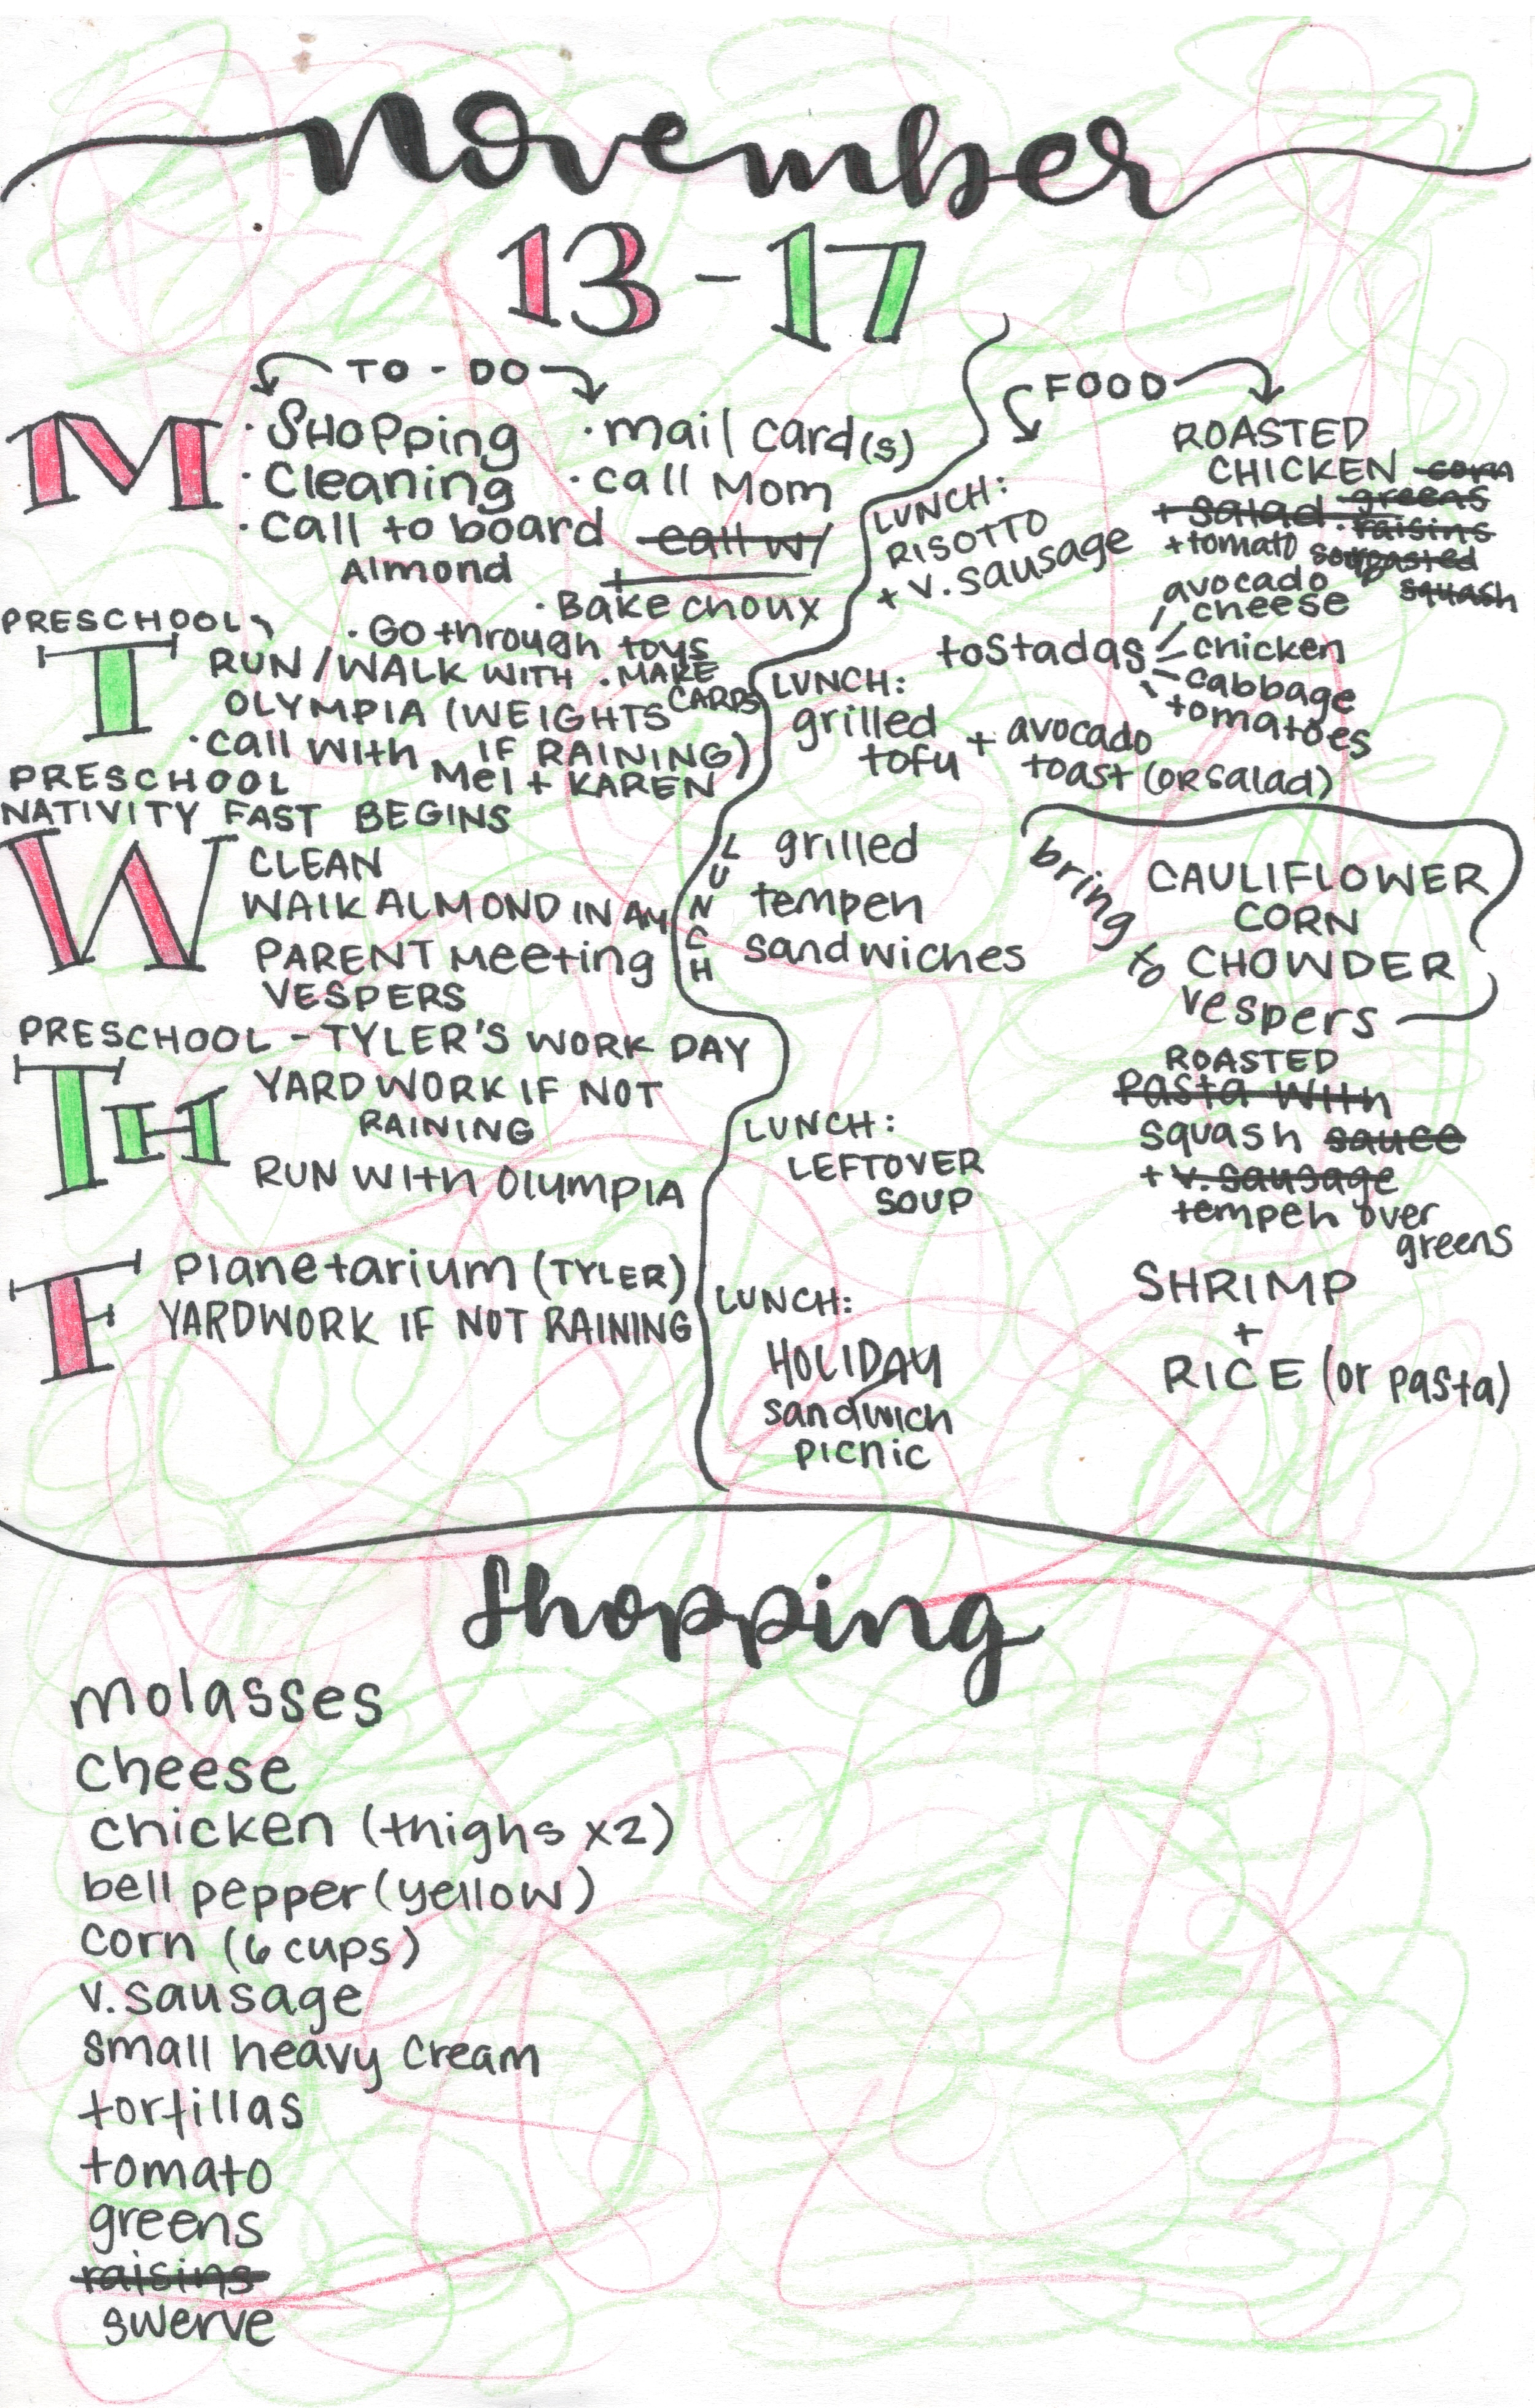 November
13-17
TO-DO
M
· SHOPPing
· Cleaning
· call to board
Almond
· mail card(s)
· call Mom
call w/
+
· Bake choux
FOOD
LUNCH:
RISOTTO
+ v. sausage
ROASTED
CHICKEN corn
+ salad · greens
· raisins
+ tomato
roasted
squash
PRESCHOOL
T
· Go through toys
RUN/WALK WITH · MAKE
CARDS
OLYMPIA (WEIGHTS
IF RAINING)
· call with
Mel + KAREN
LUNCH:
grilled
tofu
+ avocado
toast (OR salad)
tostadas
avocado
cheese
chicken
cabbage
tomatoes
PRESCHOOL
NATIVITY FAST BEGINS
W
CLEAN
WALK ALMOND IN AM
PARENT Meeting
VESPERS
LUNCH
grilled
tempeh
sandwiches
bring to
CAULIFLOWER
CORN
CHOWDER
vespers
PRESCHOOL - TYLER'S WORK DAY
TH
YARD WORK IF NOT
RAINING
RUN WITH OLYMPIA
LUNCH:
LEFTOVER
SOUP
ROASTED
Pasta with
squash sauce
+ v. sausage
tempeh over
greens
F
Planetarium (TYLER)
YARDWORK IF NOT RAINING
LUNCH:
HOLIDAY
sandwich
picnic
SHRIMP
+
RICE (or pasta)
Shopping
molasses
cheese
chicken (thighs x2)
bell pepper (yellow)
corn (6 cups)
v. sausage
small heavy cream
tortillas
tomato
greens
raisins
swerve